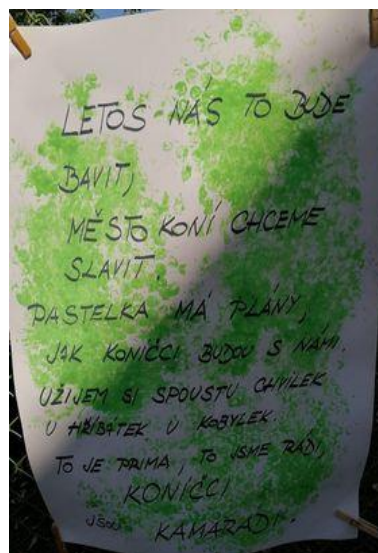 LETOS NÁS TO BUDE
BAVIT,
MĚSTO KONÍ CHCEME
SLAVIT.
PASTELKA MÁ PLÁNY,
JAK KONÍČCI BUDOU S NÁMI.
UŽIJEM SI SPOUSTU CHVILEK
U HŘÍBÁTEK U KOBYLEK.
TO JE PRIMA, TO JSME RÁDI,
KONÍČCI
JSOU KAMARÁDI.